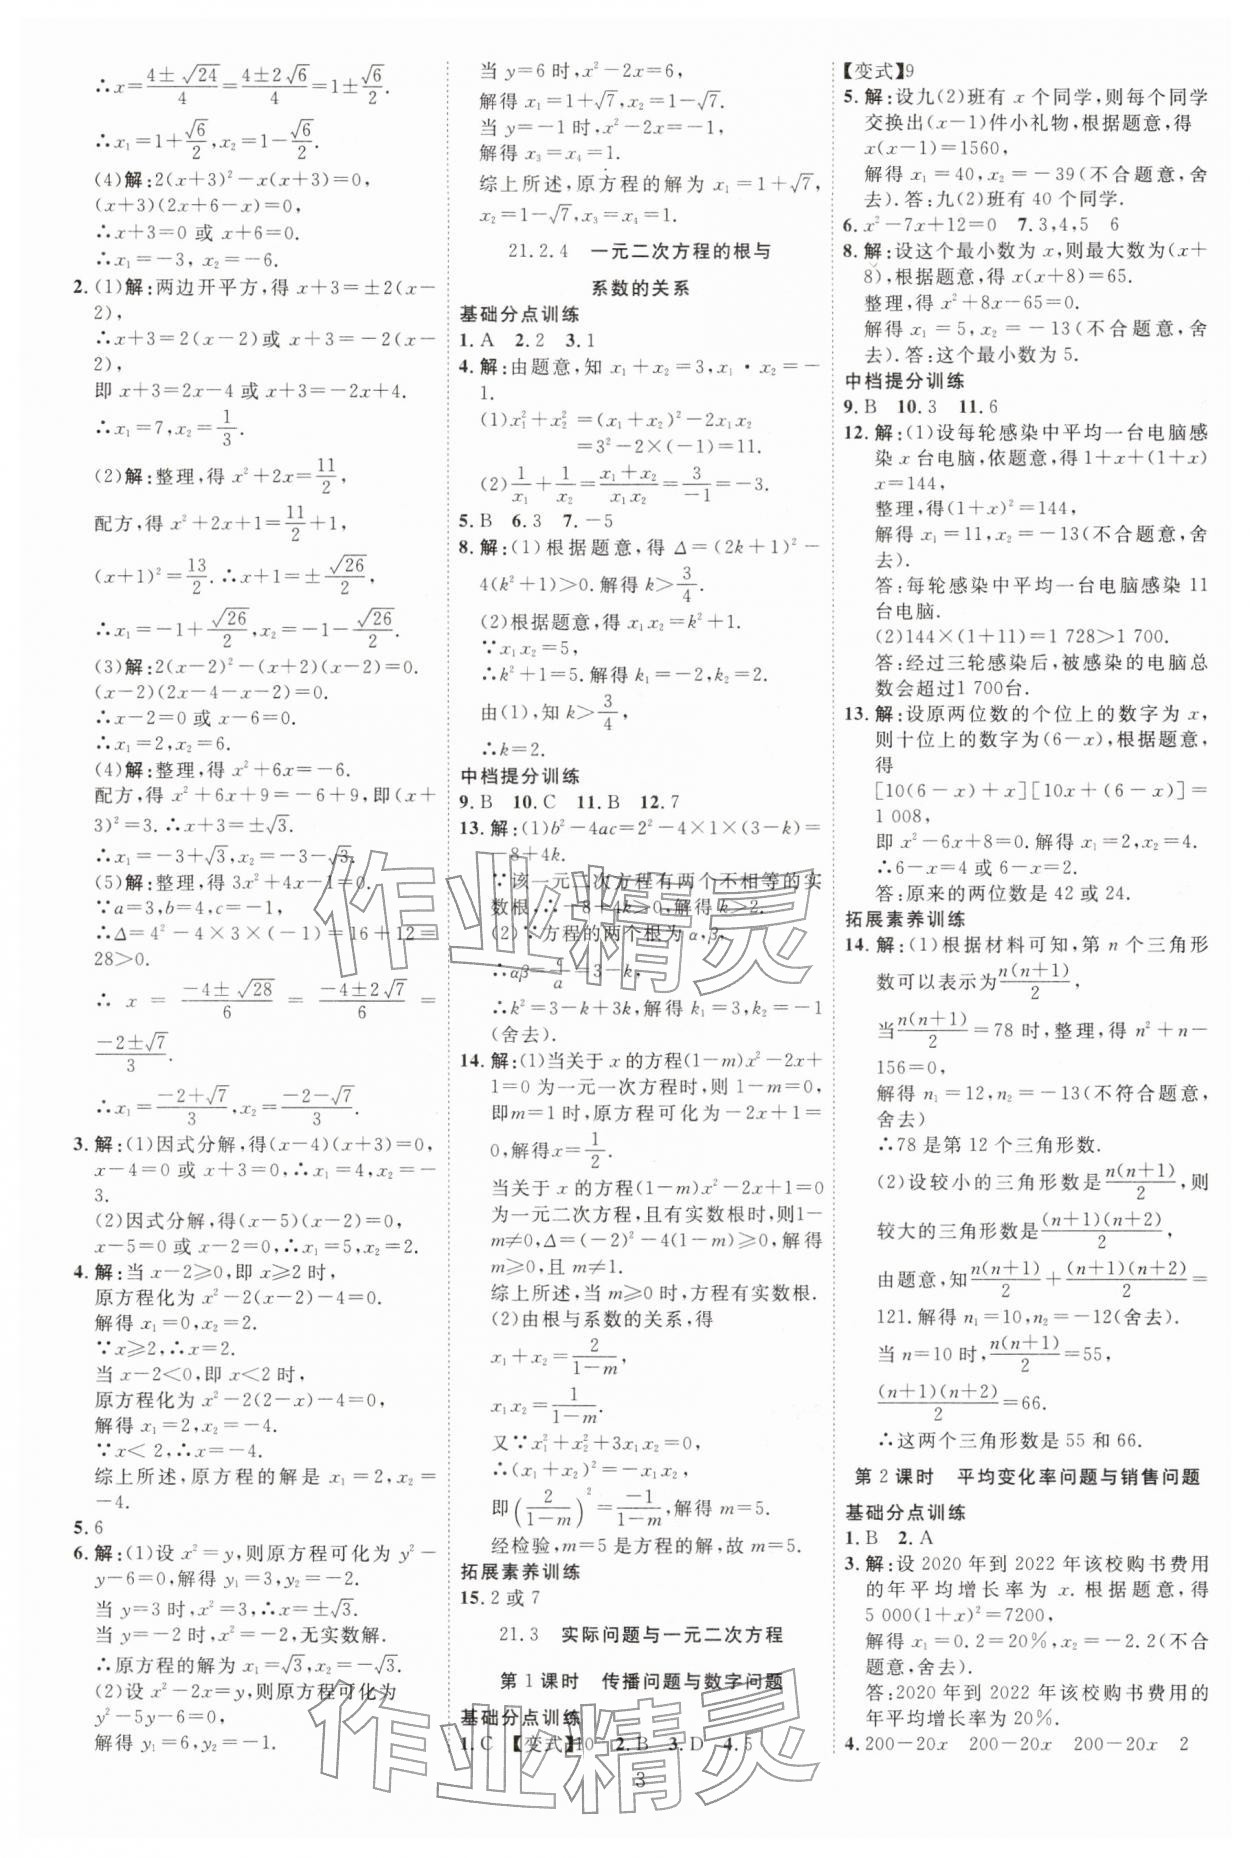 ∴x=(4±√24)/4=(4±2√6)/4=1±√6/2.
∴x₁=1+√6/2,x₂=1-√6/2.
(4)解:2(x+3)²-x(x+3)=0,
(x+3)(2x+6-x)=0,
∴x+3=0 或 x+6=0.
∴x₁=-3, x₂=-6.
2. (1)解:两边开平方,得 x+3=±2(x-
2),
∴x+3=2(x-2)或 x+3=-2(x-
2),
即 x+3=2x-4 或 x+3=-2x+4.
∴x₁=7,x₂=1/3.
(2)解:整理,得 x²+2x=11/2,
配方,得 x²+2x+1=11/2+1,
(x+1)²=13/2.∴x+1=±√26/2,
∴x₁=-1+√26/2,x₂=-1-√26/2.
(3)解:2(x-2)²-(x+2)(x-2)=0.
(x-2)(2x-4-x-2)=0.
∴x-2=0 或 x-6=0.
∴x₁=2,x₂=6.
(4)解:整理,得 x²+6x=-6.
配方,得 x²+6x+9=-6+9,即(x+
3)²=3.∴x+3=±√3.
∴x₁=-3+√3,x₂=-3-√3.
(5)解:整理,得 3x²+4x-1=0.
∵a=3,b=4,c=-1,
∴Δ=4²-4×3×(-1)=16+12=
28>0.
∴ x = (-4±√28)/6 = (-4±2√7)/6 =
(-2±√7)/3.
∴x₁=(-2+√7)/3,x₂=(-2-√7)/3.
3. 解:(1)因式分解,得(x-4)(x+3)=0,
x-4=0 或 x+3=0,∴x₁=4,x₂=-
3.
(2)因式分解,得(x-5)(x-2)=0,
x-5=0 或 x-2=0,∴x₁=5,x₂=2.
4. 解:当 x-2≥0,即 x≥2 时,
原方程化为 x²-2(x-2)-4=0.
解得 x₁=0,x₂=2.
∵x≥2,∴x=2.
当 x-2<0,即 x<2 时,
原方程化为 x²-2(2-x)-4=0.
解得 x₁=2,x₂=-4.
∵x<2,∴x=-4.
综上所述,原方程的解是 x₁=2,x₂=
-4.
5. 6
6. 解:(1)设 x²=y,则原方程可化为 y²-
y-6=0,解得 y₁=3,y₂=-2.
当 y=3 时,x²=3,∴x=±√3.
当 y=-2 时,x²=-2,无实数解.
∴原方程的解为 x₁=√3,x₂=-√3.
(2)设 x²-2x=y,则原方程可化为
y²-5y-6=0,
解得 y₁=6,y₂=-1.
当 y=6 时,x²-2x=6,
解得 x₁=1+√7,x₂=1-√7.
当 y=-1 时,x²-2x=-1,
解得 x₃=x₄=1.
综上所述,原方程的解为 x₁=1+√7,
x₂=1-√7,x₃=x₄=1.
21.2.4 一元二次方程的根与
系数的关系
基础分点训练
1. A 2. 2 3. 1
4. 解:由题意,知 x₁+x₂=3,x₁·x₂=-
1.
(1)x₁²+x₂²=(x₁+x₂)²-2x₁x₂
=3²-2×(-1)=11.
(2)1/x₁+1/x₂=(x₁+x₂)/(x₁x₂)=3/(-1)=-3.
5. B 6. 3 7. -5
8. 解:(1)根据题意,得 Δ=(2k+1)²-
4(k²+1)>0.解得 k>3/4.
(2)根据题意,得 x₁x₂=k²+1.
∵x₁x₂=5,
∴k²+1=5.解得 k₁=-2,k₂=2.
由(1),知 k>3/4,
∴k=2.
中档提分训练
9. B 10. C 11. B 12. 7
13. 解:(1)b²-4ac=2²-4×1×(3-k)=
-8+4k.
∵该一元二次方程有两个不相等的实
数根,∴-8+4k>0,解得k>2.
(2)∵方程的两个根为 α,β,
∴αβ=c/a=3-k,
∴k²=3-k+3k,解得 k₁=3,k₂=-1
(舍去).
14. 解:(1)当关于 x 的方程(1-m)x²-2x+
1=0为一元一次方程时,则 1-m=0,
即m=1 时,原方程可化为-2x+1=
0,解得x=1/2.
当关于 x 的方程(1-m)x²-2x+1=0
为一元二次方程,且有实数根时,则1-
m≠0,Δ=(-2)²-4(1-m)≥0,解得
m≥0,且 m≠1.
综上所述,当 m≥0时,方程有实数根.
(2)由根与系数的关系,得
x₁+x₂=2/(1-m),
x₁x₂=1/(1-m).
又∵x₁²+x₂²+3x₁x₂=0,
∴(x₁+x₂)²=-x₁x₂.
即(2/(1-m))²=-1/(1-m),解得 m=5.
经检验,m=5 是方程的解,故 m=5.
拓展素养训练
15. 2 或 7
21.3 实际问题与一元二次方程
第 1 课时 传播问题与数字问题
基础分点训练
1. C 【变式】10 2. B 3. D 4. 5
【变式】9
5. 解:设九(2)班有 x 个同学,则每个同学
交换出(x-1)件小礼物,根据题意,得
x(x-1)=1560,
解得 x₁=40,x₂=-39(不合题意,舍
去).答:九(2)班有 40 个同学.
6. x²-7x+12=0 7. 3,4,5 6
8. 解:设这个最小数为 x,则最大数为(x+
8),根据题意,得 x(x+8)=65.
整理,得 x²+8x-65=0.
解得 x₁=5,x₂=-13(不合题意,舍
去).答:这个最小数为 5.
中档提分训练
9. B 10. 3 11. 6
12. 解:(1)设每轮感染中平均一台电脑感
染 x 台电脑,依题意,得1+x+(1+x)
x=144,
整理,得(1+x)²=144,
解得 x₁=11,x₂=-13(不合题意,舍
去).
答:每轮感染中平均一台电脑感染 11
台电脑.
(2)144×(1+11)=1 728>1 700.
答:经过三轮感染后,被感染的电脑总
数会超过1 700台.
13. 解:设原两位数的个位上的数字为 x,
则十位上的数字为(6-x),根据题意,
得
[10(6-x)+x][10x+(6-x)]=
1 008,
即 x²-6x+8=0.解得 x₁=2,x₂=4.
∴6-x=4 或 6-x=2.
答:原来的两位数是 42 或 24.
拓展素养训练
14. 解:(1)根据材料可知,第 n 个三角形
数可以表示为n(n+1)/2,
当n(n+1)/2=78 时,整理,得 n²+n-
156=0,
解得 n₁=12,n₂=-13(不符合题意,
舍去)
∴78 是第 12 个三角形数.
(2)设较小的三角形数是n(n+1)/2,则
较大的三角形数是(n+1)(n+2)/2,
由题意,知n(n+1)/2+(n+1)(n+2)/2=
121.解得 n₁=10,n₂=-12(舍去).
当 n=10 时,n(n+1)/2=55,
(n+1)(n+2)/2=66.
∴这两个三角形数是 55 和 66.
第 2 课时 平均变化率问题与销售问题
基础分点训练
1. B 2. A
3. 解:设 2020 年到 2022 年该校购书费用
的年平均增长率为 x. 根据题意,得
5 000(1+x)²=7200,
解得 x₁=0.2=20%,x₂=-2.2(不合
题意,舍去).
答:2020 年到 2022 年该校购书费用的
年平均增长率为 20%.
4. 200-20x 200-20x 200-20x 2
3
作业精灵
作业精灵